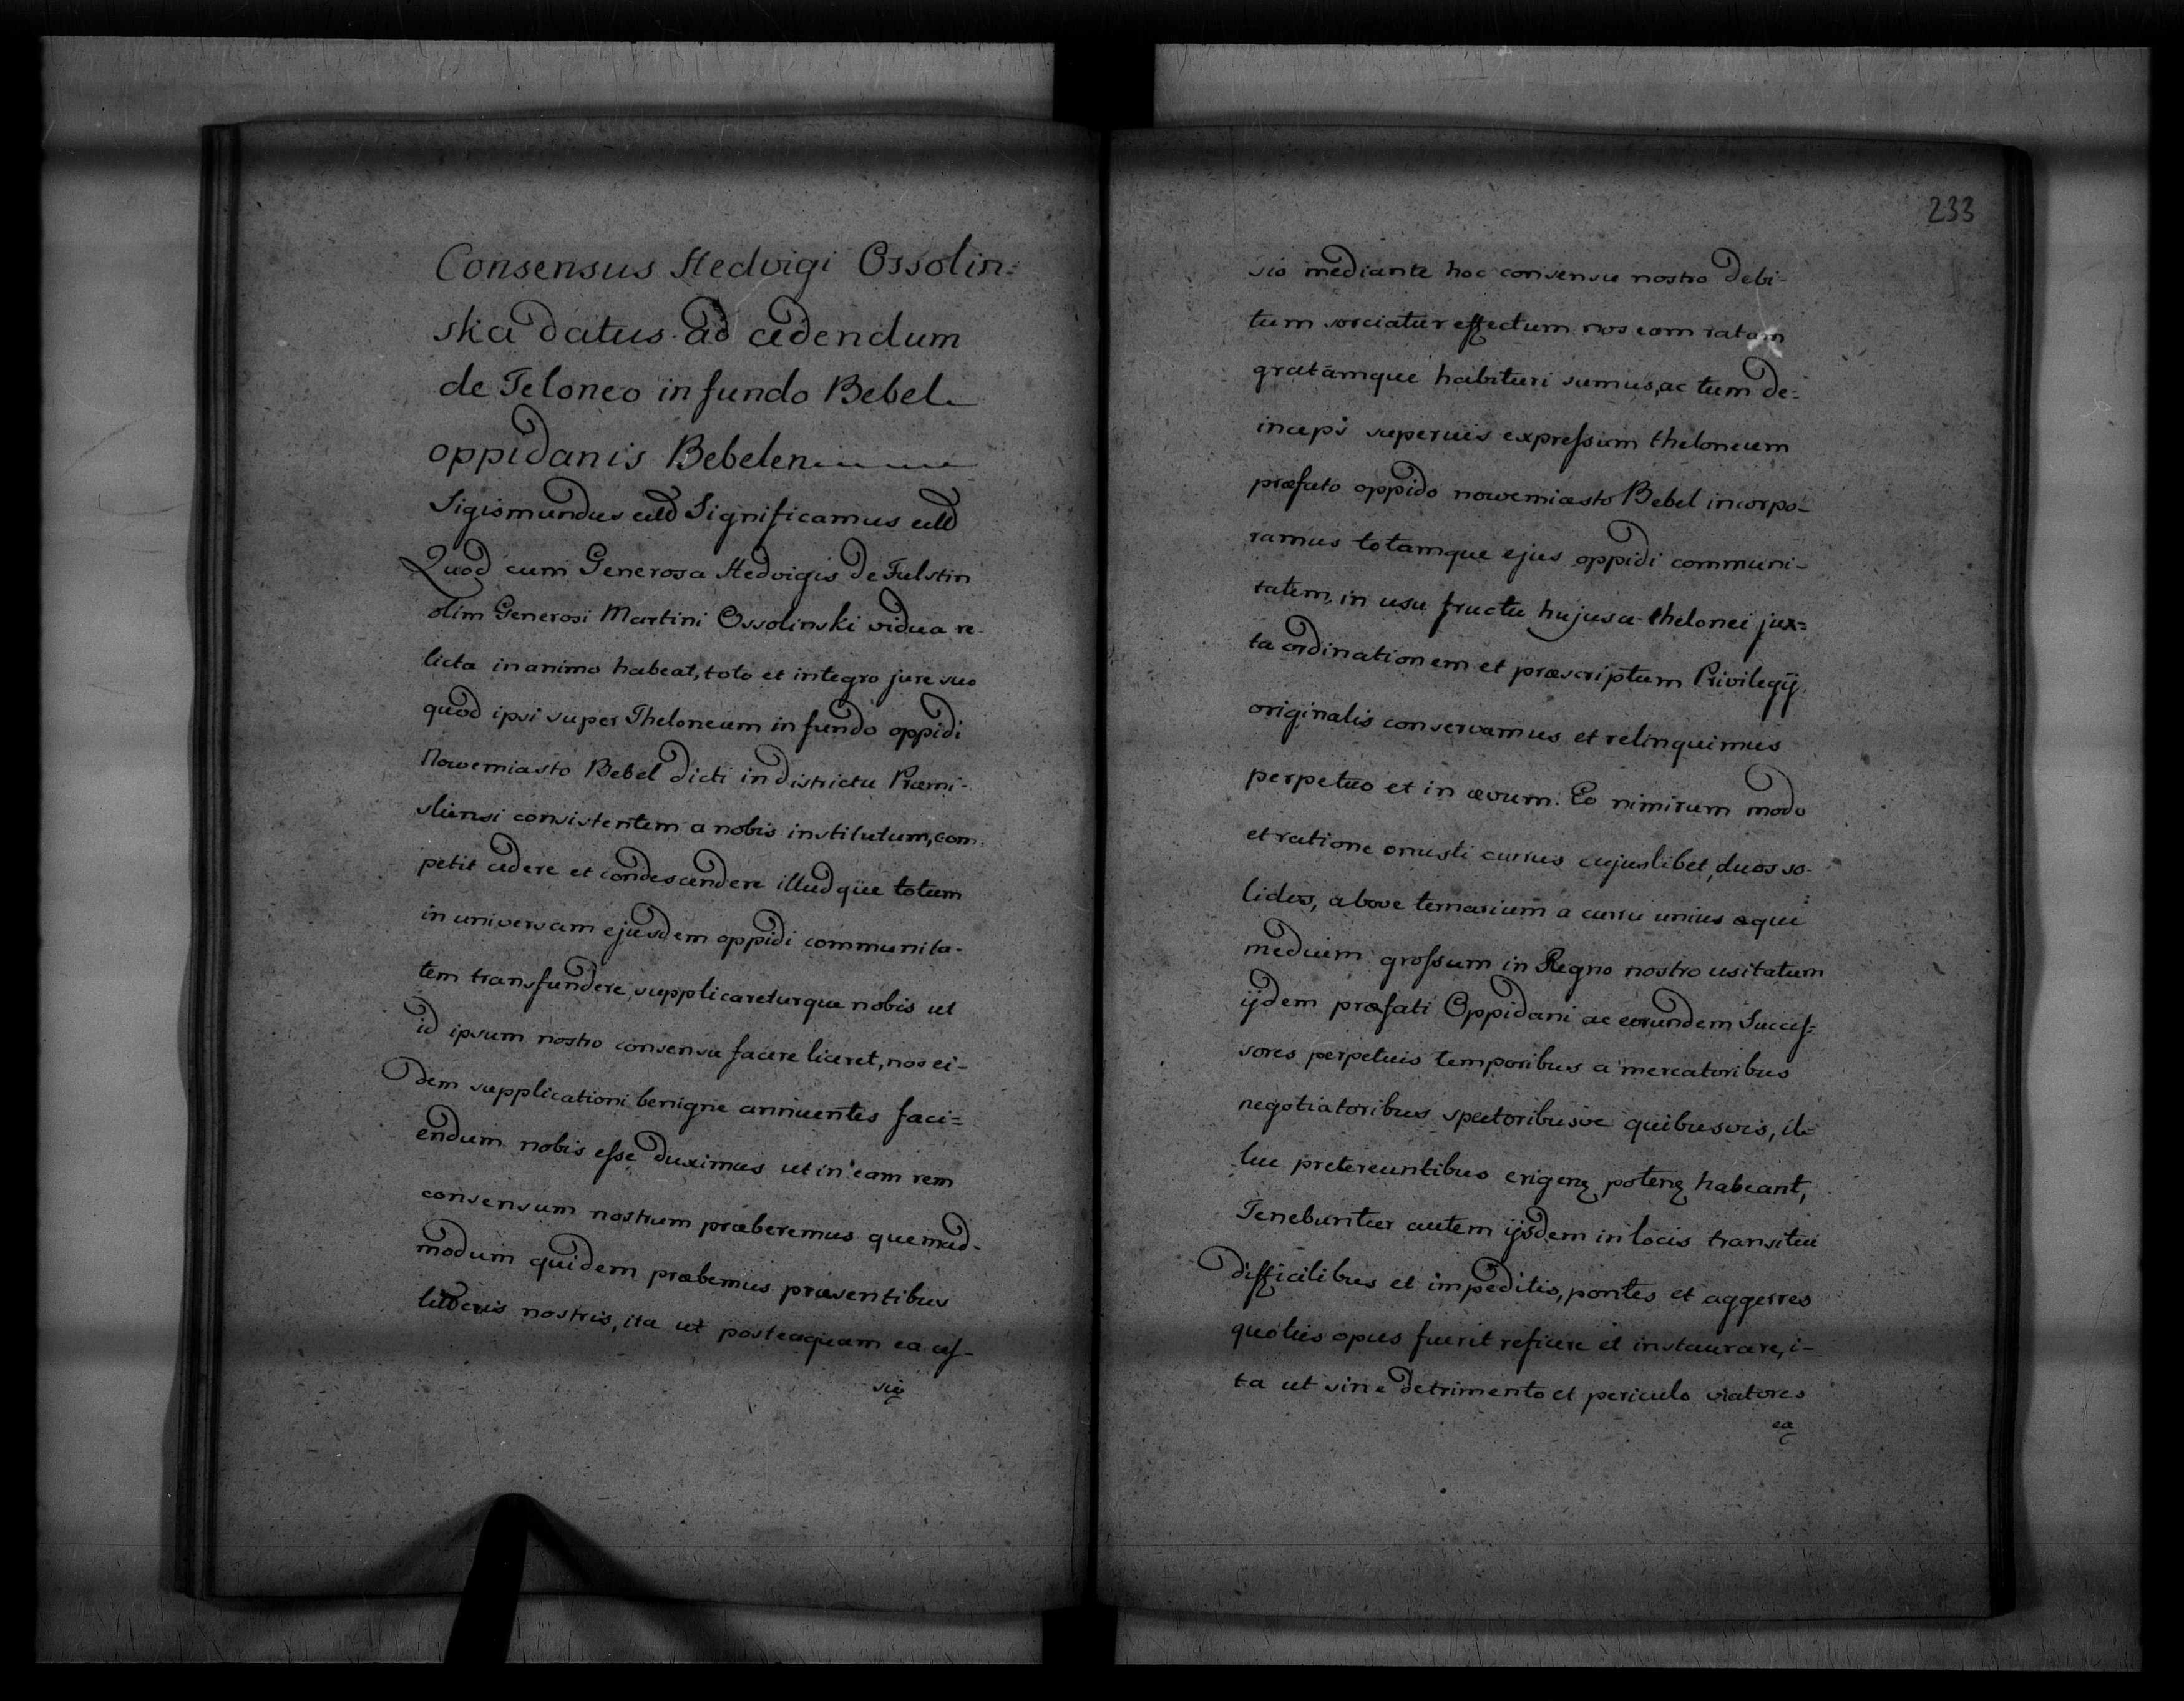 Consensus Hedvigi Ossolin=
ska datus ad cedendum
de Teloneo in fundo Bebel
oppidanis Bebelen
Sigismundus etc Significamus etc
Quod cum Generosa Hedvigis de Fulstin
olim Generosi Martini Ossolinski vidua re-
licta in animo habeat, toto et integro jure suo
quod ipsi super Theloneum in fundo oppidi
Nowemiasto Bebel dicti in districtu Præmi-
sliensi consistentem a nobis institutum, com-
petit cedere et condescendere illudque totum
in universam ejusdem oppidi communita-
tem transfundere, supplicareturque nobis ut
id ipsum nostro consensu facere liceret, nos ei-
dem supplicationi benigne annuentes faci=
endum nobis esse duximus ut in eam rem
consensum nostrum præberemus quemad-
modum quidem præbemus præsentibus
litteris nostris, ita ut posteaquam ea ces-
sio
233
sio mediante hoc consensu nostro debi-
tum sorciatur effectum nos eam ratam
gratamque habituri sumus, ac tum de=
inceps superuis expressum theloneum
præfato oppido nowemiasto Bebel incorpo-
ramus totamque ejus oppidi communi-
tatem, in usu fructu hujusce thelonei jux=
ta ordinationem et præscriptum Privilegij
originalis conservamus et relinquimus
perpetuo et in ævum. Eo nimirum modo
et ratione onusti currus cujuslibet, duos so-
lidos, a bove ternarium a curru unius equi
medium grossum in Regno nostro usitatum
ijdem præfati Oppidani ac eorundem Succes=
sores perpetuis temporibus a mercatoribus
negotiatoribus quibusvis, il-
luc pretereuntibus habeant,
Tenebuntur autem ijsdem in locis transitui
difficilibus et impeditis, pontes et aggerres
quoties opus fuerit reficere et instaurare, i-
ta ut sine detrimento et periculo viatores
ea